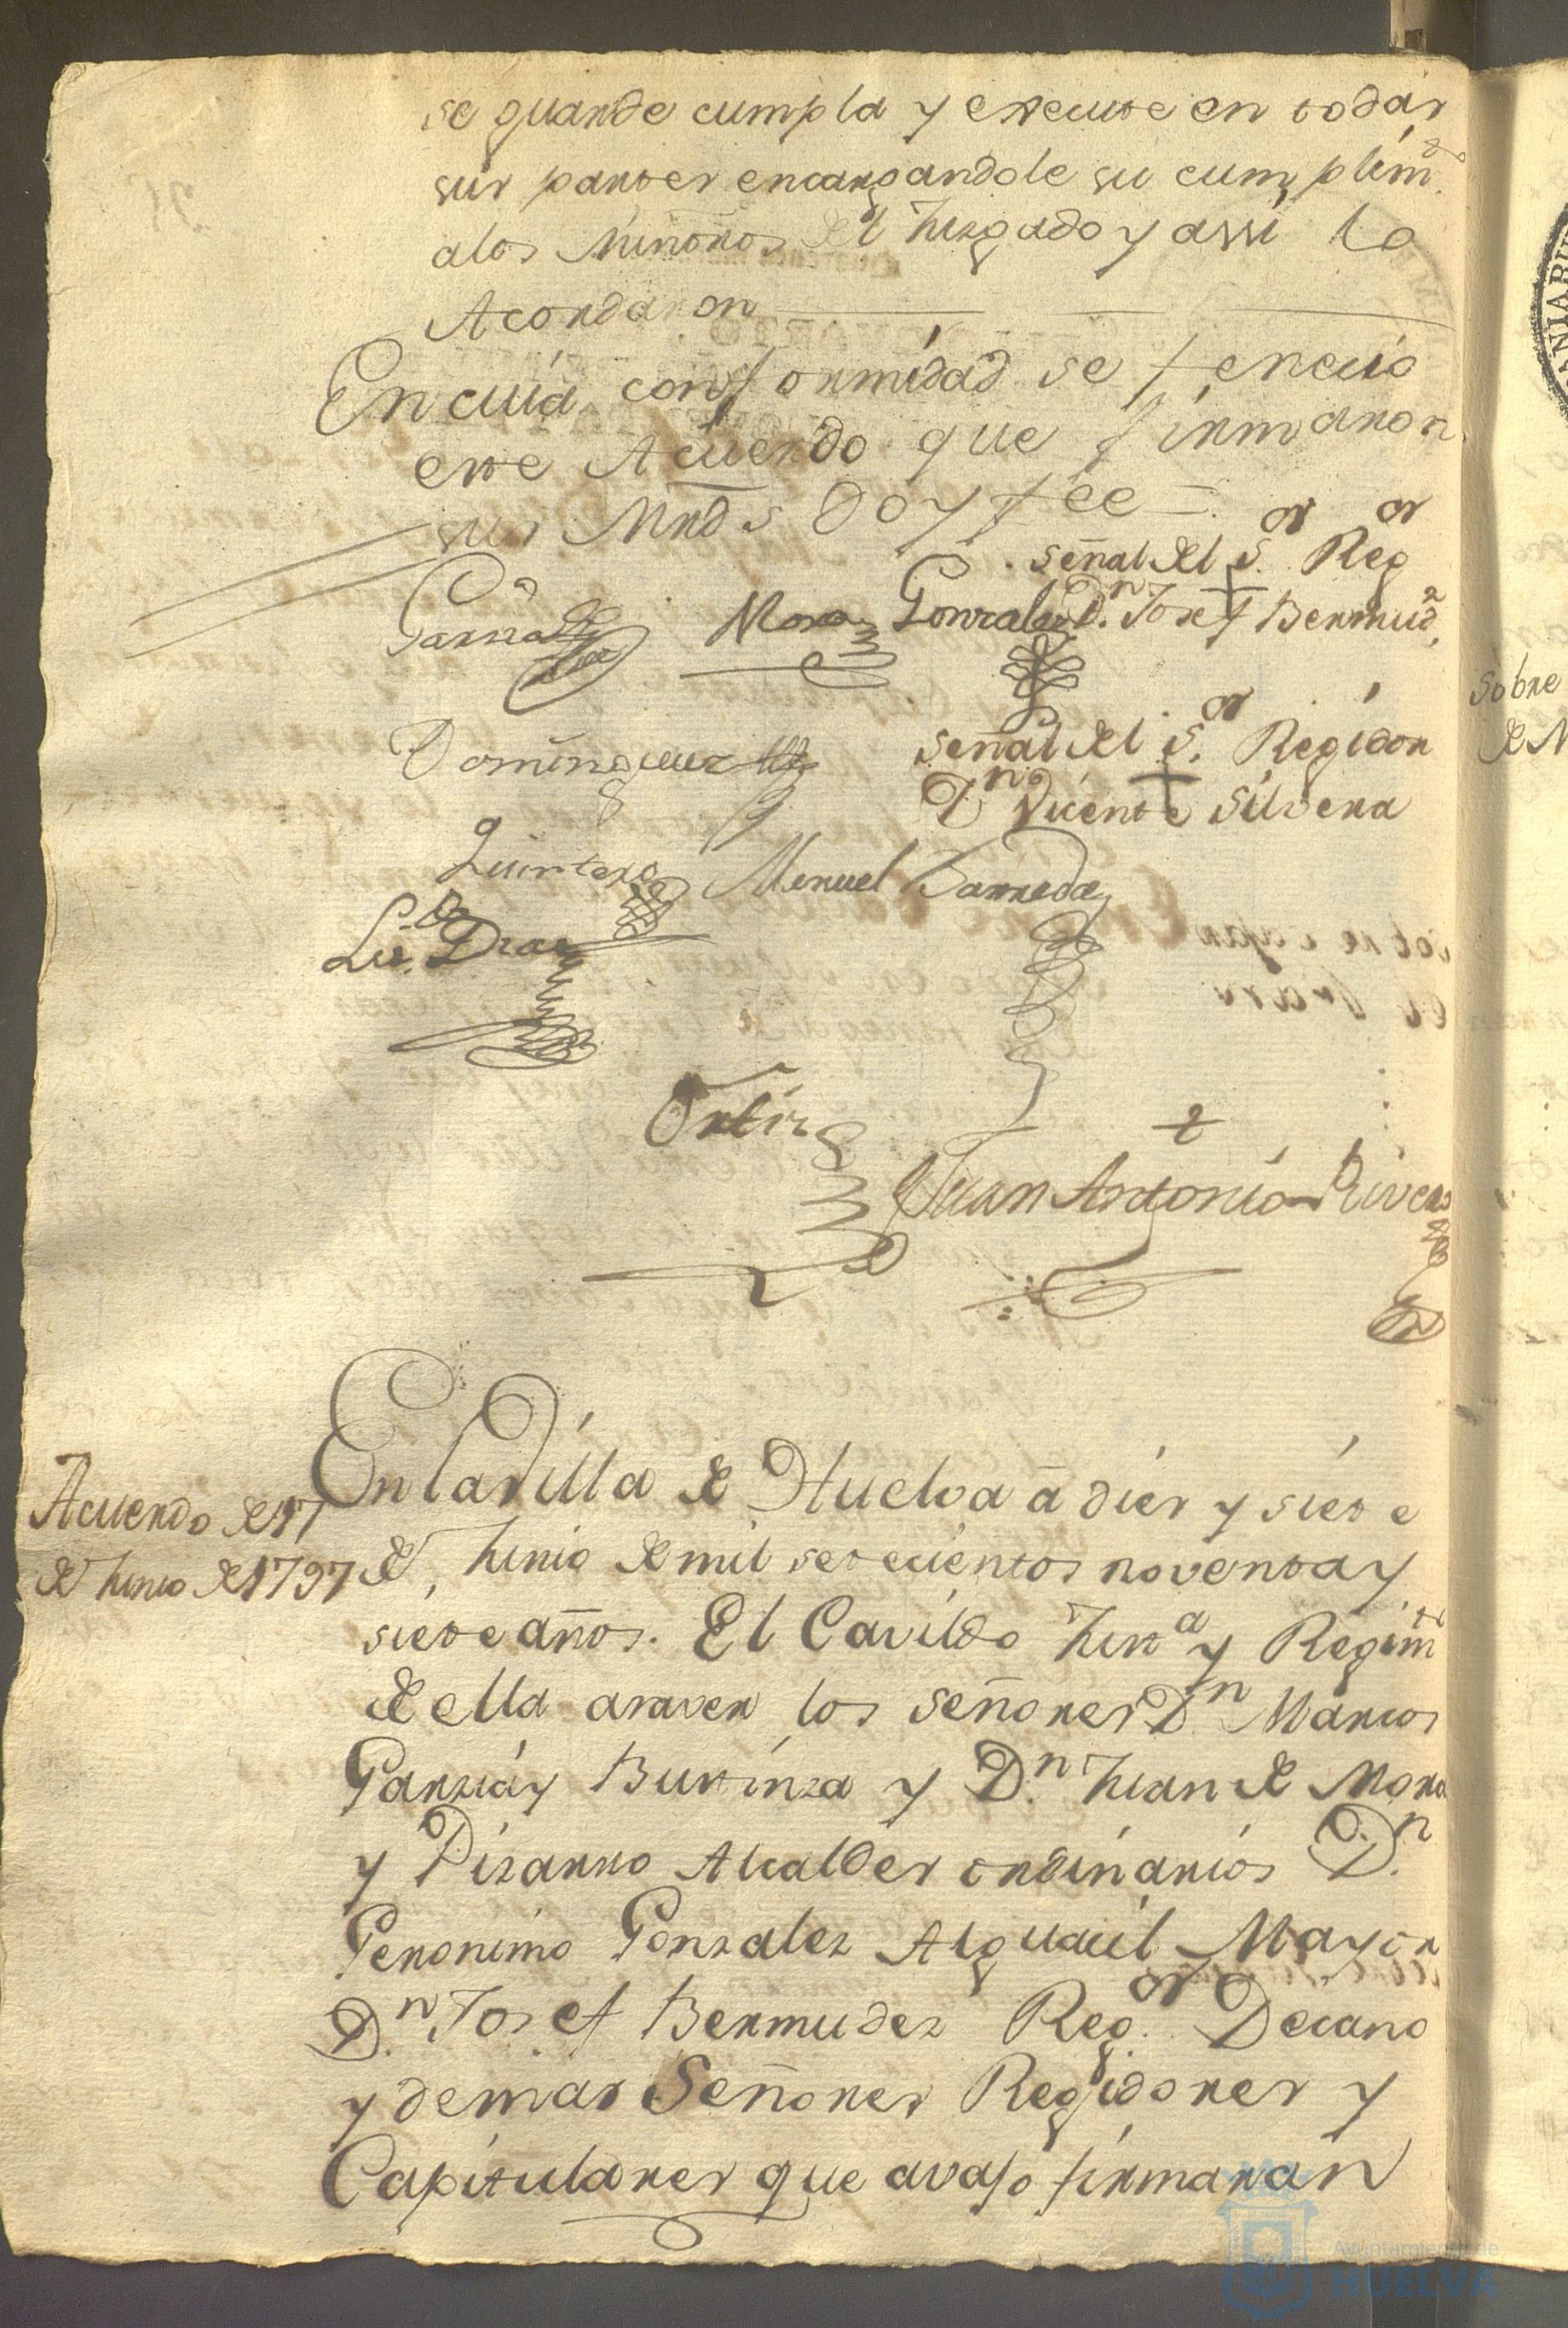 se guarde cumpla y execute en todas
sus partes encargandole su cumplimto
a los Miñonos del Juzgado y assi lo
Acordaron
En cuia conformidad se fenecio
este Acuerdo que firmaron
sus Mrds Doy fee =
señal del Sor Regor
Garzia Mora Gonzalez Dn Josef Bermudz
Dominguez señal del Sor Regidor
Dn Vicente Silvera
Quintero Manuel Barreda
Lis. Do Diaz
Ortiz
Juan Antonio Rivera
En la Villa de Huelva a dies y siete
Acuerdo de 17
de Junio de 1797
de Junio de mil setecientos noventa y
siete años. El Cavildo Justa y Regimto
de ella asaver los señores Dn Marcos
Garzia y Burinza y Dn Juan de Mora
y Pizarro Alcaldes ordinarios Dn
Geronimo Gonzalez Alguacil Mayor
Dn Josef Bermudez Regor Decano
y demas Señores Regidores y
Capitulares que avajo firmaran
Sobre
de N
Ayuntamiento de
HUELVA